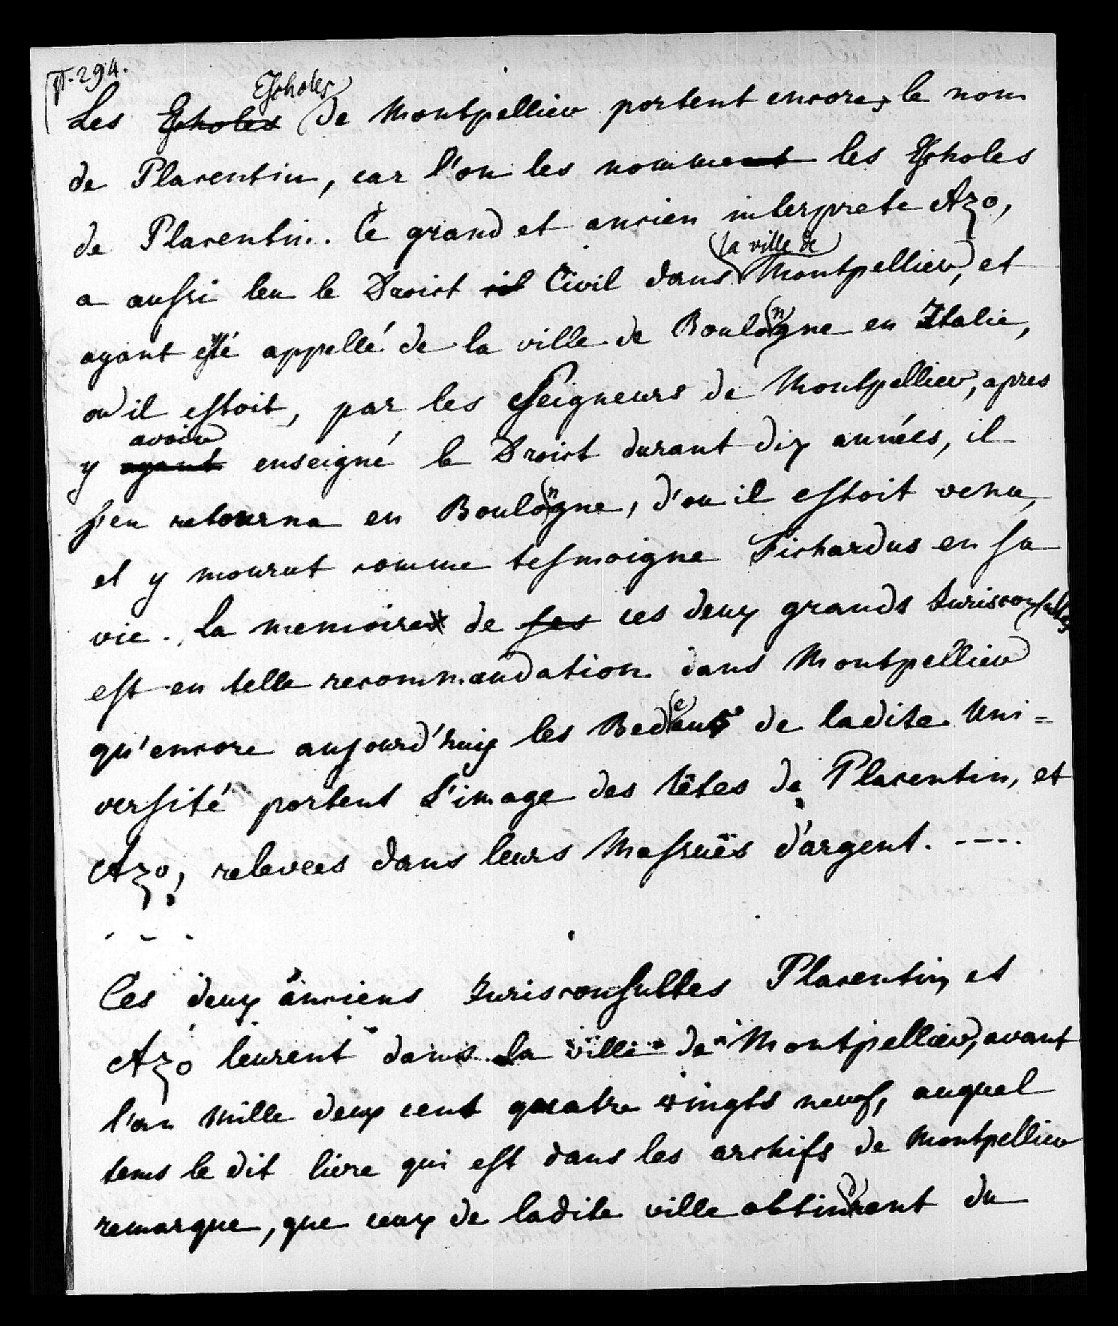 p. 294.
Escholes
Les Escholes de Montpellier portent encore, le nom
de Placentin, car l'on les nomment les Escholes
de Placentin. Ce grand et ancien interprete Azo,
la ville de
a aussi leu le Droict cil Civil dans Montpellier, et
ayant esté appellé de la ville de Boulongne en Italie,
ou il estoit, par les Seigneurs de Montpellier, apres
avoir
y ayant enseigné le Droict durant dix années, il
s'en retourna en Boulongne, d'ou il estoit venu,
et y mourut comme tesmoigne Fichardus en sa
vie. La memoire de ses ces deux grands Jurisconsultes
est en telle recommandation dans Montpellier
qu'encore aujourd'huy les Bedeaus de ladite Uni=
versité portent l'image des têtes de Placentin, et
Azo, relevees dans leurs Massuës d'argent. ----
- - -
Ces deux anciens Jurisconsultes Placentin, et
Azo leurent dans la ville de Montpellier, avant
l'an mille deux cent quatre vingts neuf, auquel
tems le dit livre qui est dans les archifs de Montpellier
remarque, que ceux de ladite ville obtindrent du